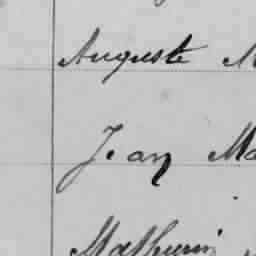 Auguste M
Jean Ma
Mathurin